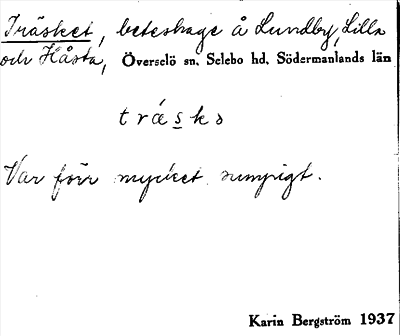 Träsket, beteshage å Lundby, Lilla
och Håsta, Överselö sn. Selebo hd. Södermanlands län
trásko
Var förr mycket sumpigt.
Karin Bergström 1937